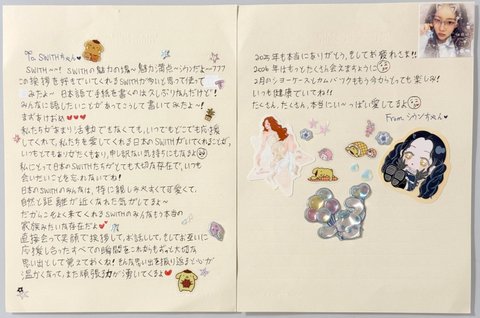 To. SWITHちゃん
SWITH~~! SWITHの魅力の場~魅力満点~シウンだよ~777
この挨拶を好きでいてくれるSWITHが多いと思って使って
みたよ~ 日本語で手紙を書くのは久しぶりなんだけど!
みんなに話したいことがあってこうして書いてみたよ~!
まずあけおめ
私たちがあまり活動できなくても、いつもどこでも応援
してくれて、私たちを愛してくれる日本のSWITHがいてくれることが、
いつもとてもありがたくもあり、申し訳ない気持ちにもなるよ
私にとって日本のSWITHたちがとても大切な存在で、いつも
会いたいことを忘れないでね!
日本のSWITHのみんなは、特に親しみやすくて可愛くて、
自然と距離が近くなれた気がしてるよ~
だからこそよく来てくれるSWITHのみんなもう本当の
家族みたいな存在だよ
直接会って笑顔で挨拶して、お話しして、そしてお互いに
応援し合ったすべての瞬間をこれからもずっと大切な
思い出として覚えておくね! そんな思い出を振り返ると心が
温かくなって、また頑張る力が湧いてくるよ
2025年も本当にありがとう、そしてお疲れさま!!
2026年はもっとたくさん会えますように
2月のショーケースとカムバ ワクももう今からとっても楽しみ!
いつも健康でいてね!!
たくさん、たくさん、本当にい~っぱい愛してるよ
From シウンちゃん